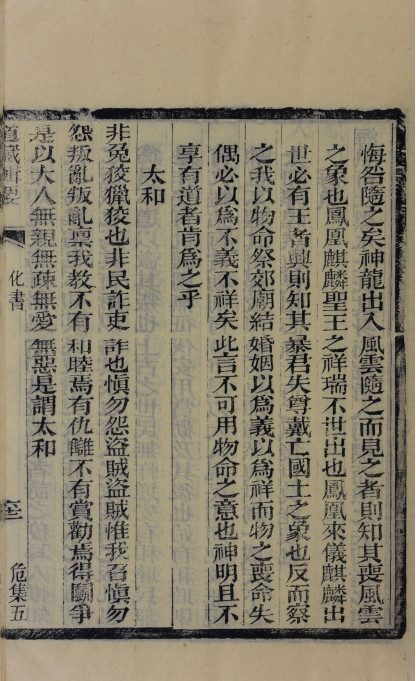 悔咎隨之矣神龍出入風雲隨之而見之者則知其喪風雲
之象也鳳凰麒麟聖王之祥瑞不世出也鳳凰來儀麒麟出
世必有王者興則知其暴君失尊戴亡國土之象也反而察
之我以物命祭郊廟結婚姻以爲義以爲祥而物之喪命失
偶必以爲不義不祥矣此言不可用物命之意也神明且不
享有道者肯爲之乎
太和
非兔狡獵狡也非民詐吏詐也愼勿怨盜賊盜賊惟我召愼勿
怨叛亂叛亂稟我教不有和睦焉有仇讎不有賞勸焉得鬬爭
是以大人無親無疎無愛無惡是謂太和
道藏輯要
化書
危集五